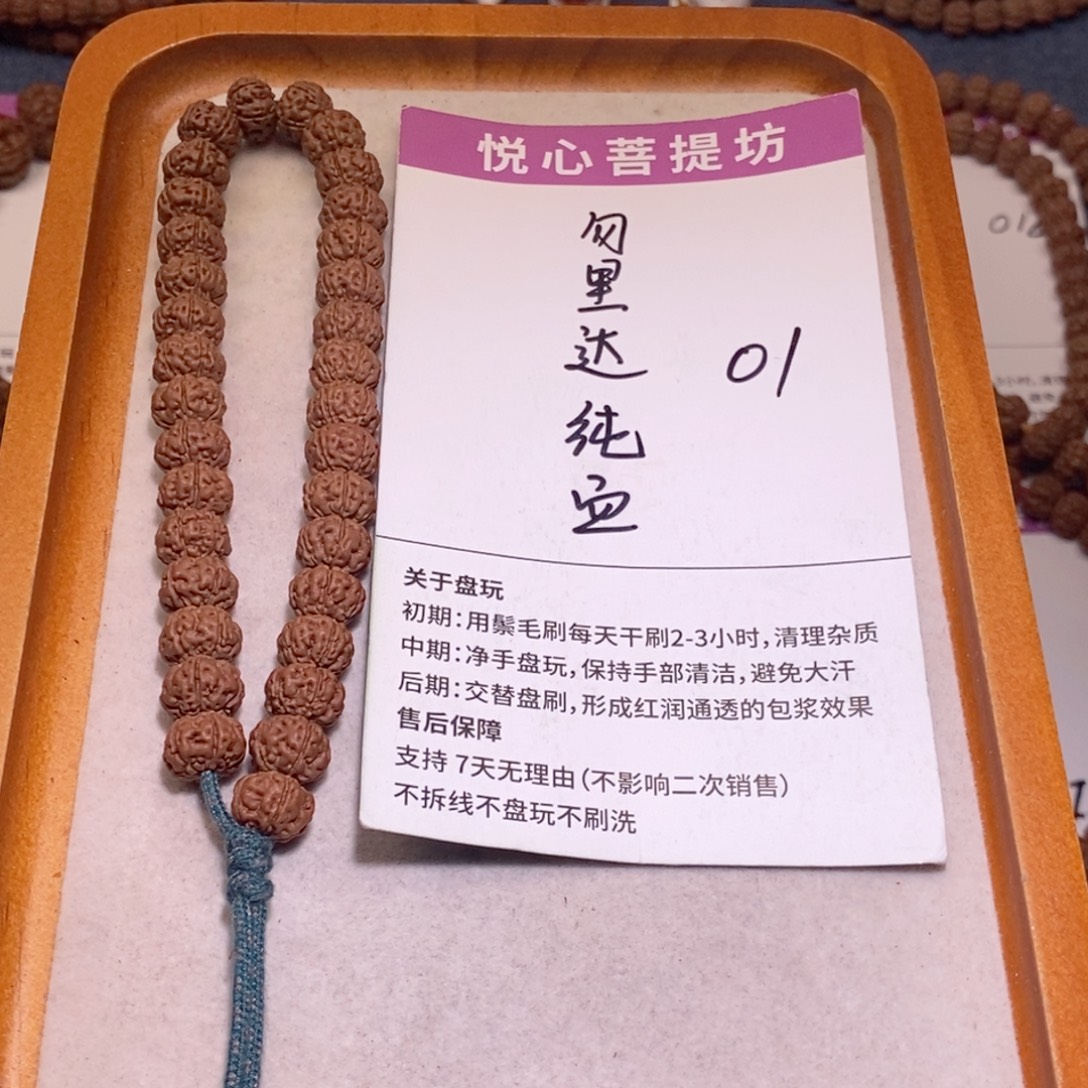 悦心菩提坊
勿里达纯血
01
关于盘玩
初期:用鬃毛刷每天干刷2-3小时,清理杂质
中期:净手盘玩,保持手部清洁,避免大汗
后期:交替盘刷,形成红润通透的包浆效果
售后保障
支持 7天无理由(不影响二次销售)
不拆线不盘玩不刷洗